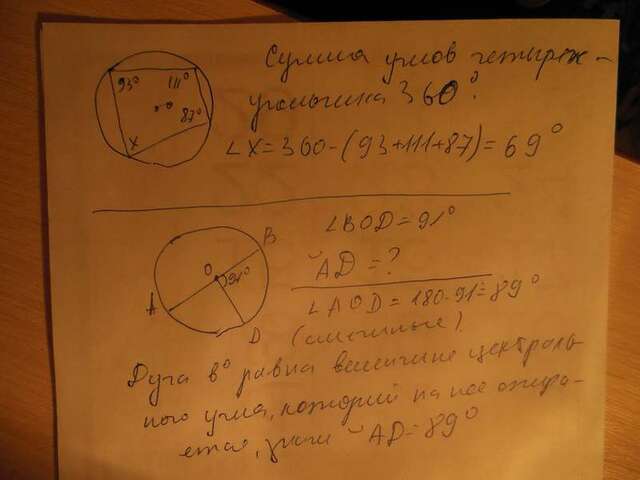 93° 111°
87°
X
Сумма углов четырех-
угольника 360°.
∠X=360-(93+111+87)=69°
∠BOD=91°
B
O
91°
A
D
◡AD=?
∠AOD=180-91=89°
(смежные)
Дуга в° равна величине централь-
ного угла, который на нее опира-
ется, значит ◡AD=89°